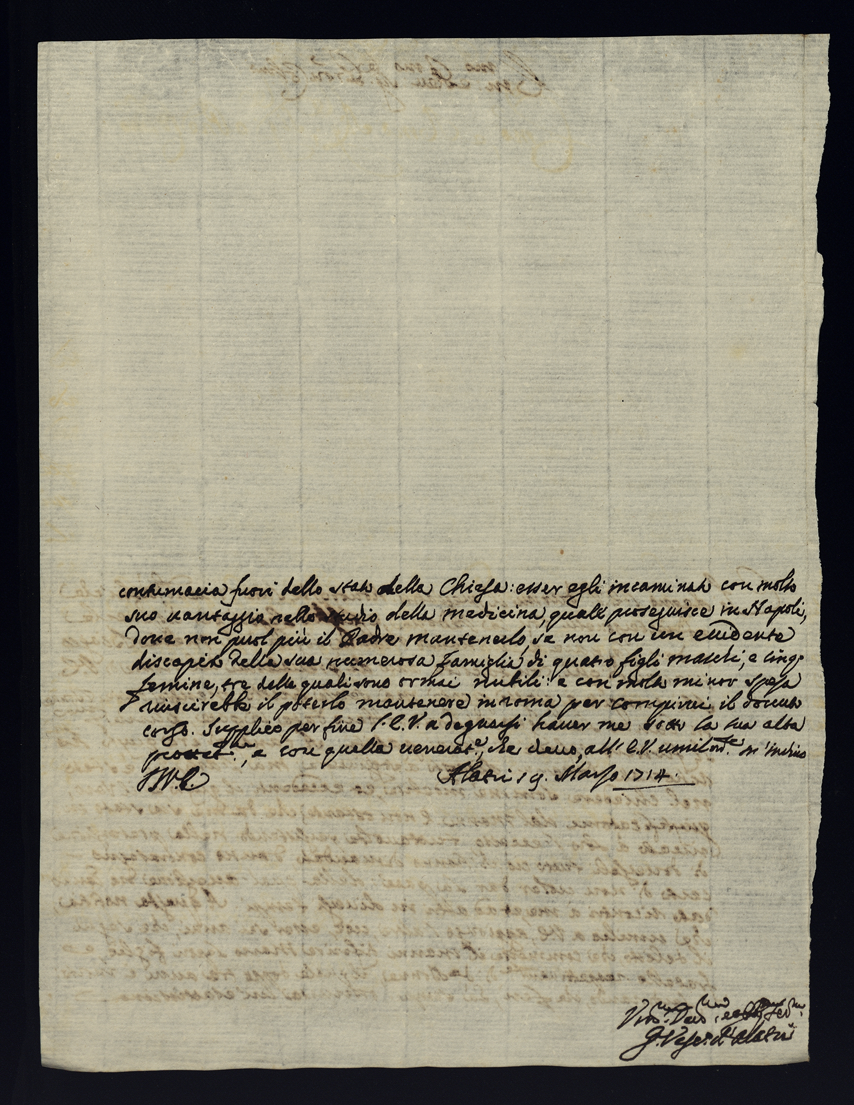 contumacia fuori dello stato della Chiesa: esser egli incaminato con molto
suo vantaggio nello studio della medicina, quale proseguisce in Napoli,
dove non puol più il Padre mantenerlo, se non con un evidente
discapito della sua numerosa famiglia di quatro figli maschi, e cinq.
femine, tre delle quali sono ormai nubili: e con molto minor spesa
riuscirebbe il poterlo mantenere in roma per compirvi il dovuto
corso. Supplico per fine l'E.V. a degnarsi haver me sotto la sua alta
protet.ne, e con quella venerat.e, che devo, all'E.V. umilm.te m'inchino
Alatri 19. Marzo 1714.
G. Vesc.o d'Alatri